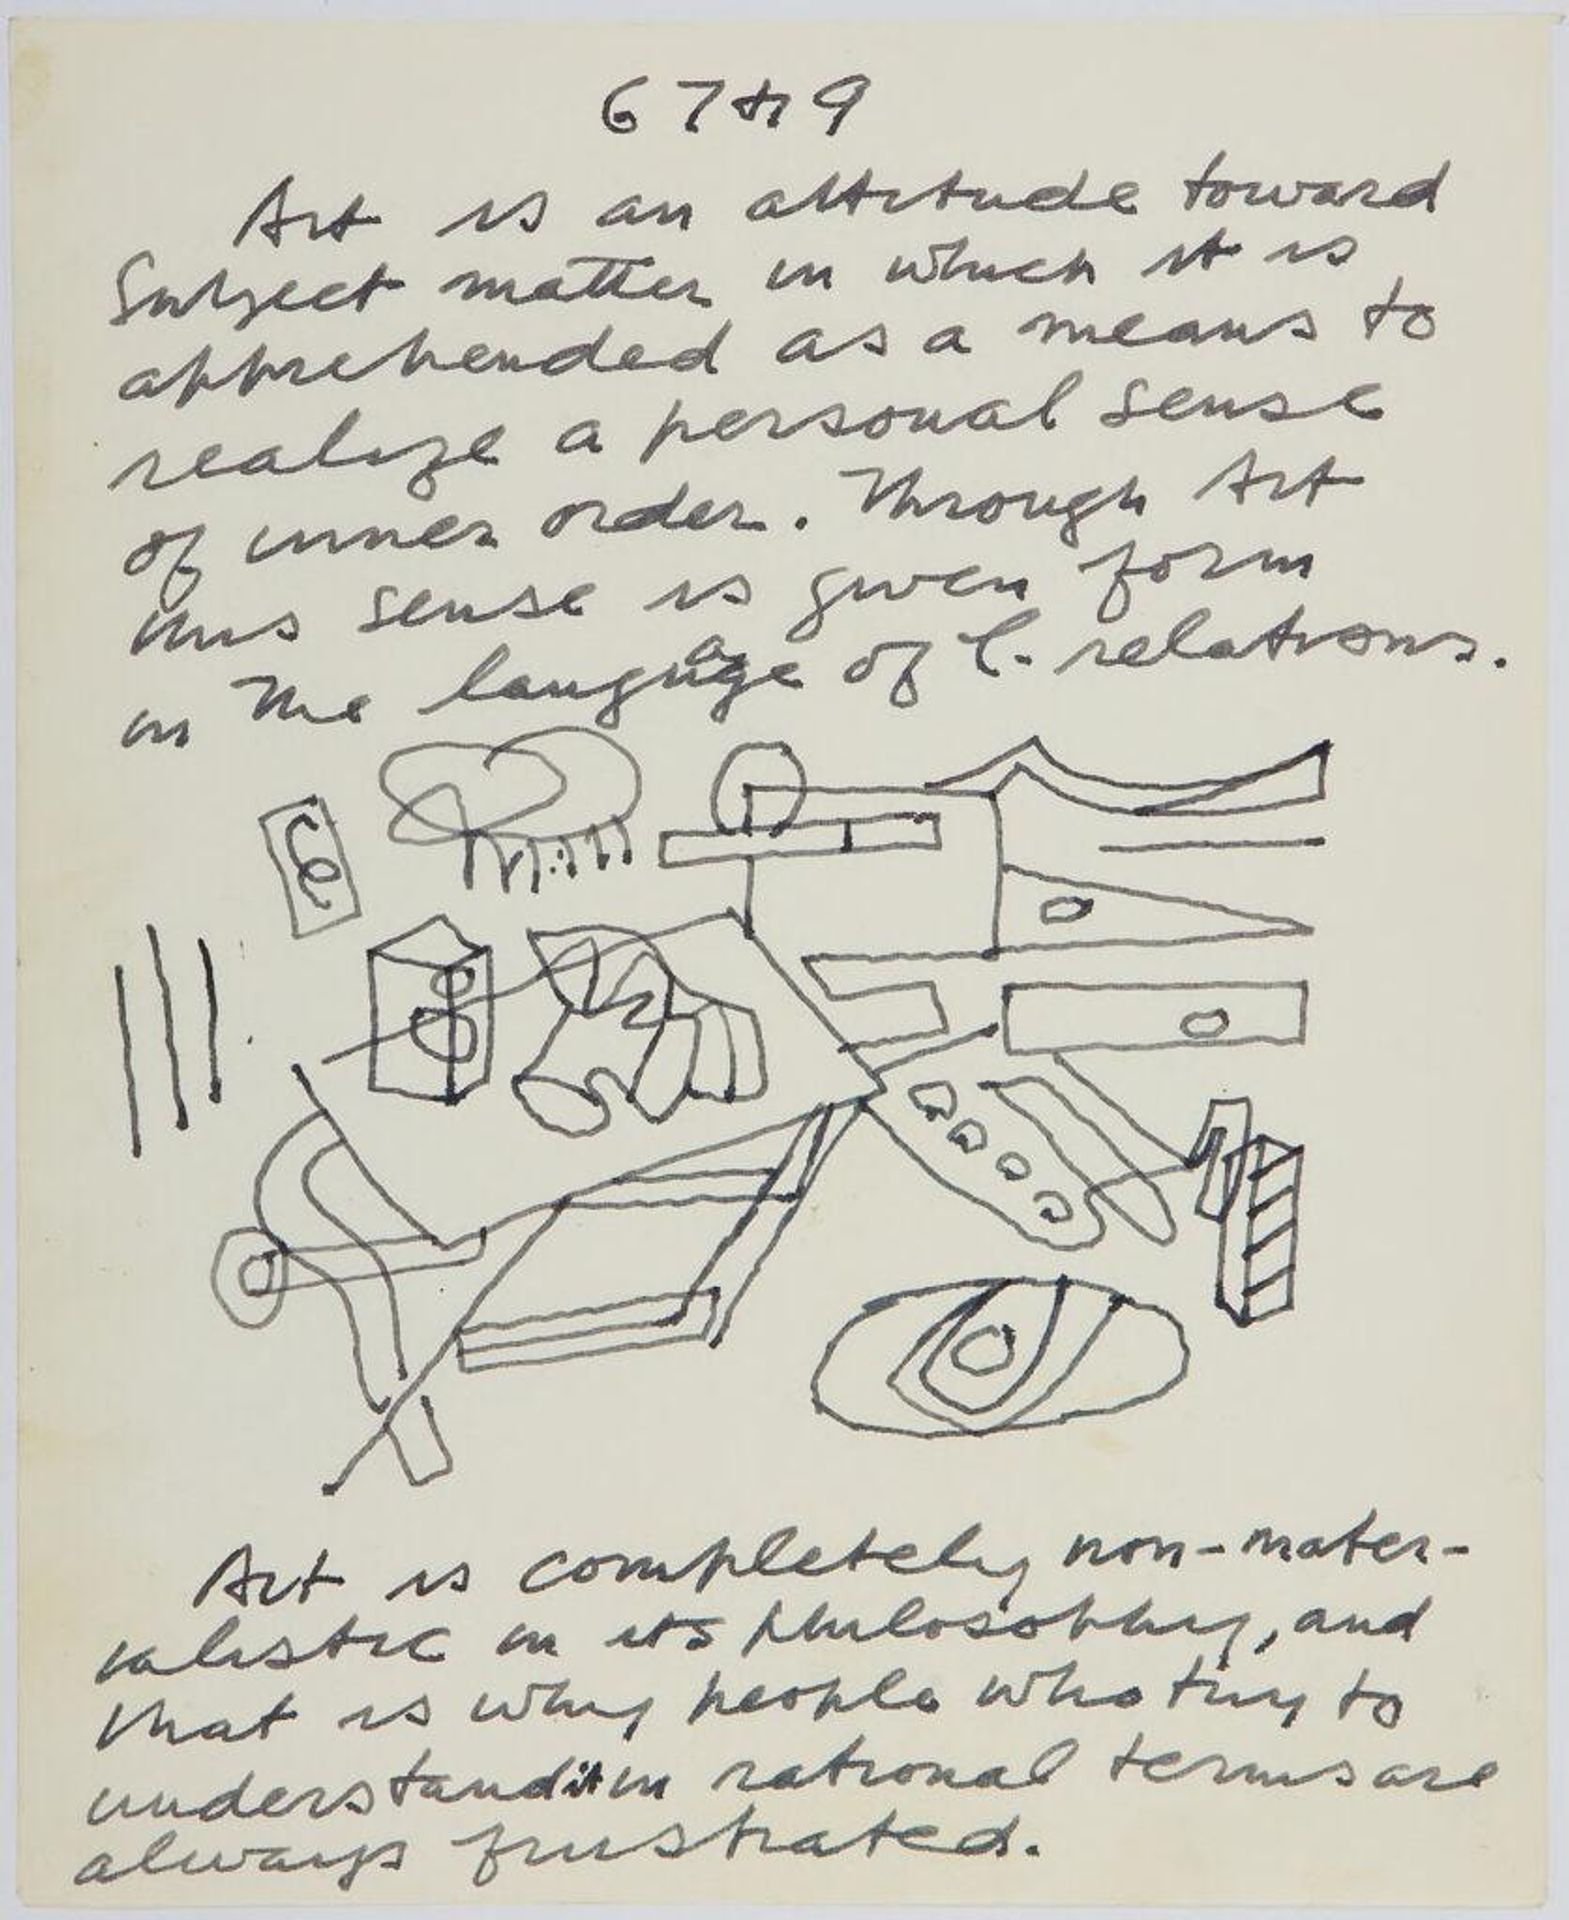 67th 9
Art is an attitude toward
Subject matter in which it is
apprehended as a means to
realize a personal sense
of inner order. Through Art
this sense is given form
in the language of C-relations.
Art is completely non-mater-
ialistic in its philosophy, and
that is why people who try to
understand it in rational terms are
always frustrated.